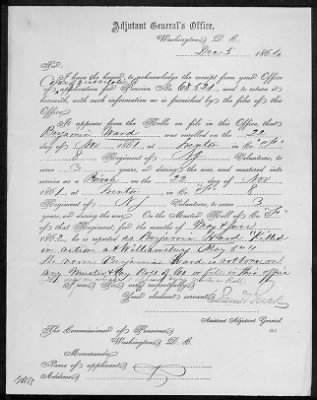 Adjutant General's Office,
Washington, D. C.
Dec 5 1864
Sir:
I have the honor to acknowledge the receipt from your Office
of application for Pension No. 68.521, and to return it
herewith, with such information as is furnished by the files of this
Office.
It appears from the Rolls on file in this Office, that
Benjamin Ward was enrolled on the 22
day of Nov 1861, at Trenton in Co. "F"
8 Regiment of N.J. Volunteers, to
serve 3 years, or during the war, and mustered into
service as a Private on the 22 of Nov
1861, at Trenton in Co. "F" 8
Regiment of N.J. Volunteers, to serve 3
years, or during the war. On the Muster Roll of Co. "F"
of that Regiment for the months of May & June
1862, he is reported as Benjamin Ward "Killed
in action at Williamsburg May 5"
name Benjamin Ward is not borne on
any Muster & Pay Roll of Co on file in this office
I am, Sir, very respectfully,
Your obedient servant,
Assistant Adjutant General.
The Commissioner of Pensions,
Washington, D. C.
Memoranda:
Name of applicant
Address